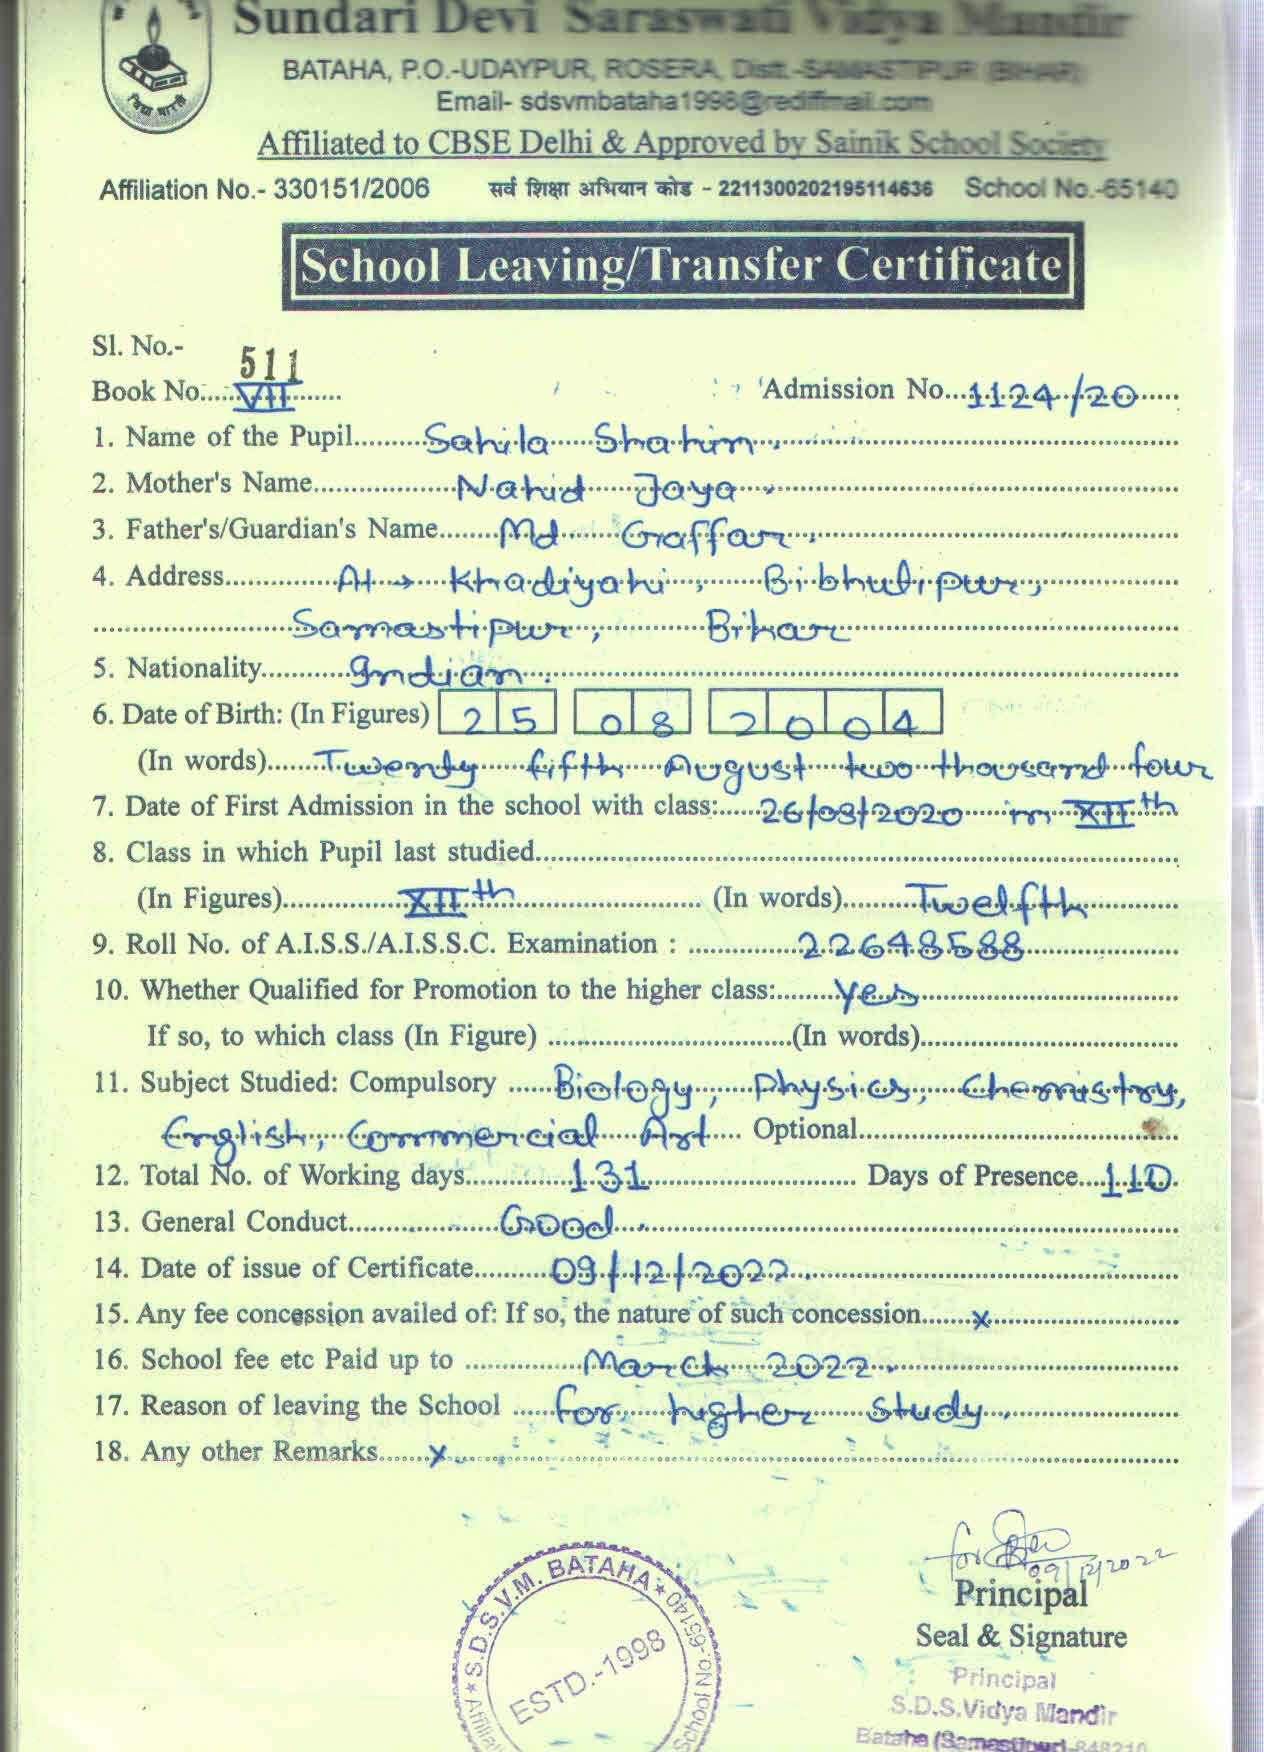 Sundari Devi Saraswati Vidya Mandir
BATAHA, P.O.-UDAYPUR, ROSERA, Distt.-SAMASTIPUR (BIHAR)
Email- sdsvmbataha1998@rediffmail.com
Affiliated to CBSE Delhi & Approved by Sainik School Society
Affiliation No.- 330151/2006 सर्व शिक्षा अभियान कोड - 2211300202195114636 School No.-65140
School Leaving/Transfer Certificate
Sl. No.- 511
Book No. VII Admission No. 1124/20
1. Name of the Pupil Sahila Shahin.
2. Mother's Name Nahid Jaya.
3. Father's/Guardian's Name Md Gaffar.
4. Address At → Khadiyahi, Bibhutipur,
Samastipur, Bihar
5. Nationality Indian.
6. Date of Birth: (In Figures) 25 08 2004
(In words) Twenty fifth August two thousand four
7. Date of First Admission in the school with class: 26/08/2020 in XIIth
8. Class in which Pupil last studied
(In Figures) XIIth (In words) Twelfth
9. Roll No. of A.I.S.S./A.I.S.S.C. Examination : 22648588
10. Whether Qualified for Promotion to the higher class: Yes
If so, to which class (In Figure) (In words)
11. Subject Studied: Compulsory Biology, Physics, Chemistry,
English, Commercial Art Optional
12. Total No. of Working days 131 Days of Presence 110
13. General Conduct Good.
14. Date of issue of Certificate 09/12/2022.
15. Any fee concession availed of: If so, the nature of such concession x
16. School fee etc Paid up to March 2022.
17. Reason of leaving the School for higher study.
18. Any other Remarks x
for
09/12/2022
Principal
Seal & Signature
Principal
S.D.S.Vidya Mandir
Bataha (Samastipur)-848210
★ S.D.S.V.M. BATAHA ★
ESTD.-1998
School No.-65140
विद्या भारती